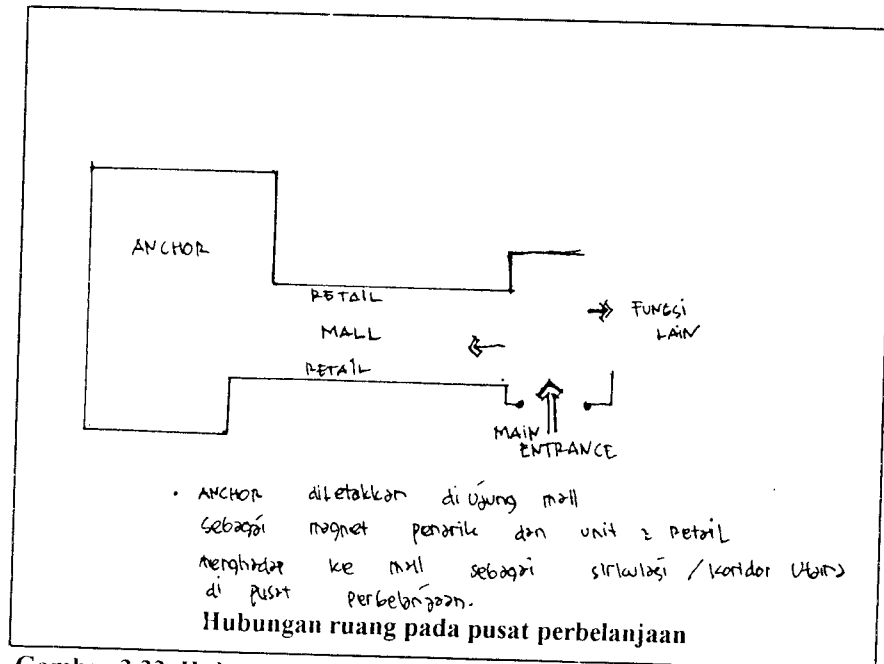 ANCHOR
RETAIL
MALL
RETAIL
FUNGSI
LAIN
MAIN
ENTRANCE
• ANCHOR diletakkan di ujung mall
sebagai magnet penarik dan unit 2 retail
menghadap ke mall sebagai sirkulasi / koridor utama
di pusat perbelanjaan.
Hubungan ruang pada pusat perbelanjaan